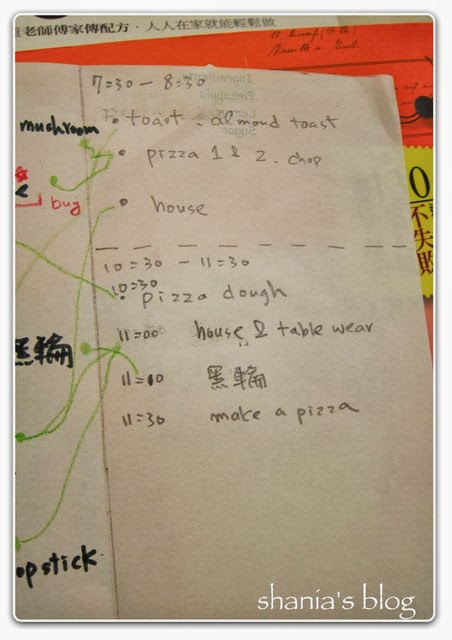 老師傅家傳配方,人人在家就能輕鬆做
7=30 - 8=30
Ingredients
Pineapple
Sugar
mushroom
• toast、almond toast
• pizza 1 & 2. chop
buy
• house
不失敗
10=30 - 11=30
10=30
• pizza dough
11=00 house & table wear
黑輪
11=10 黑輪
11=30 make a pizza
opstick
shania's blog